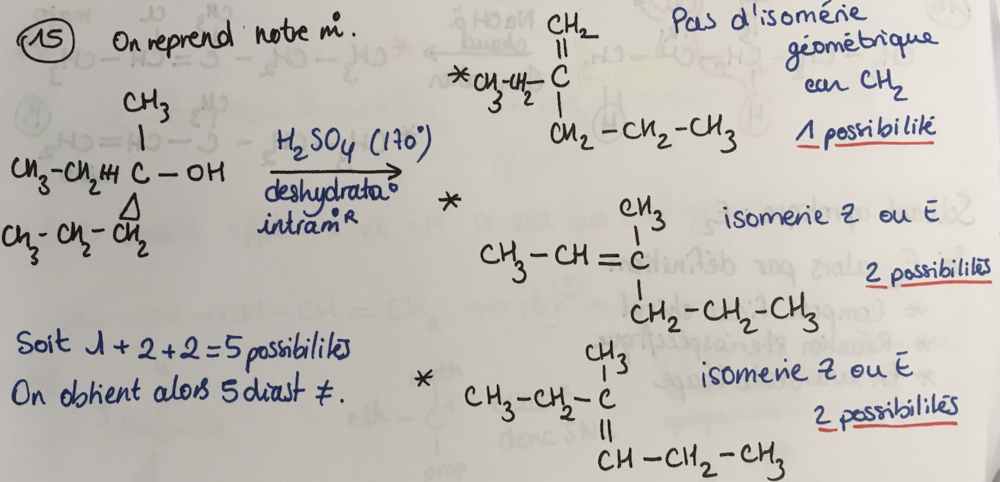 15 On reprend notre m°.
CH3
CH3-CH2 C - OH
CH3-CH2-CH2
H2SO4 (170°)
deshydrata°
intram°R
CH2
*CH3-CH2-C
CH2-CH2-CH3
Pas d'isomérie
géométrique
car CH2
1 possibilité
*
CH3
CH3-CH=C
CH2-CH2-CH3
isomerie Z ou E
2 possibilités
*
CH3
CH3-CH2-C
CH-CH2-CH3
isomerie Z ou E
2 possibilités
Soit 1+2+2=5 possibilités
On obtient alors 5 diast ≠.